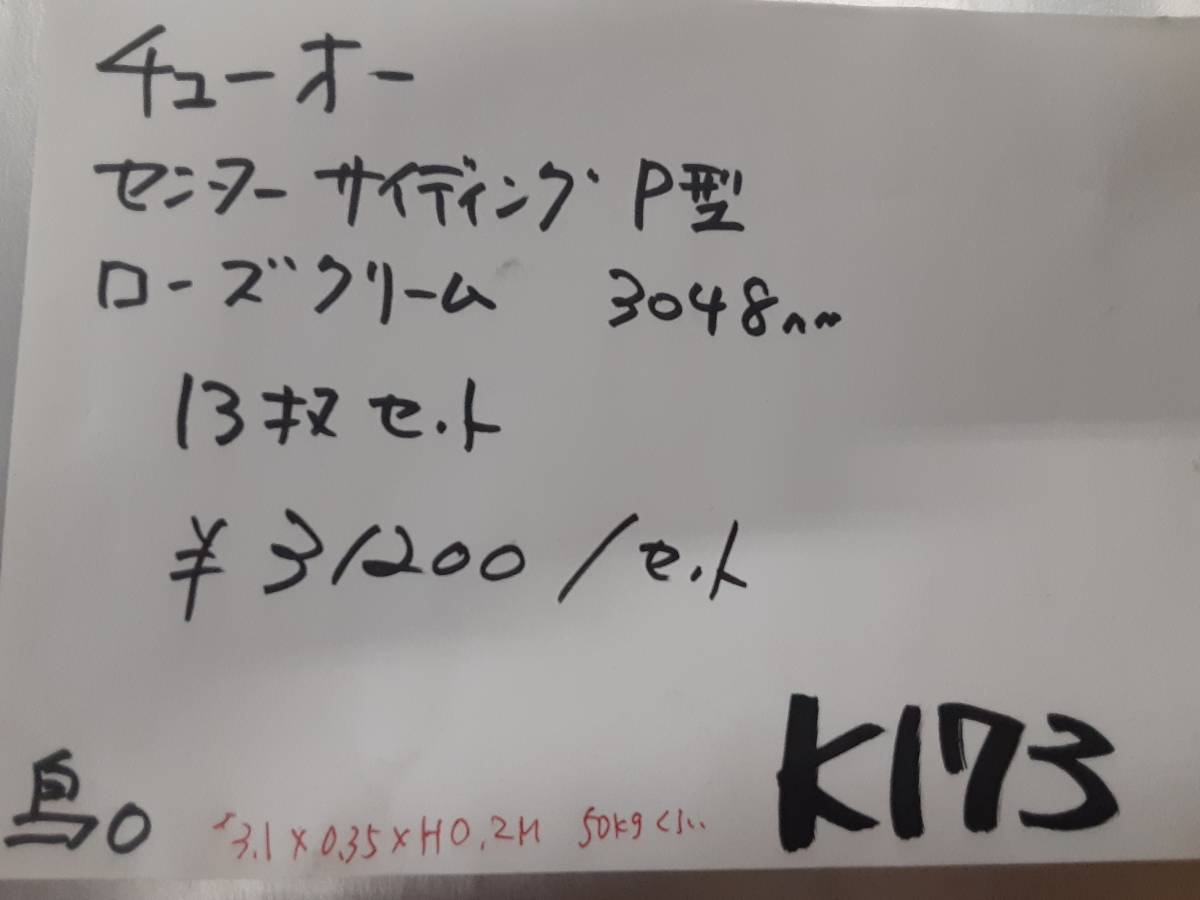 チューオー
センターサイディング P型
ローズクリーム 3048mm
13枚セット
¥31200/セット
K173
鳥0
*3.1×0.35×H0.2M 50kgくらい